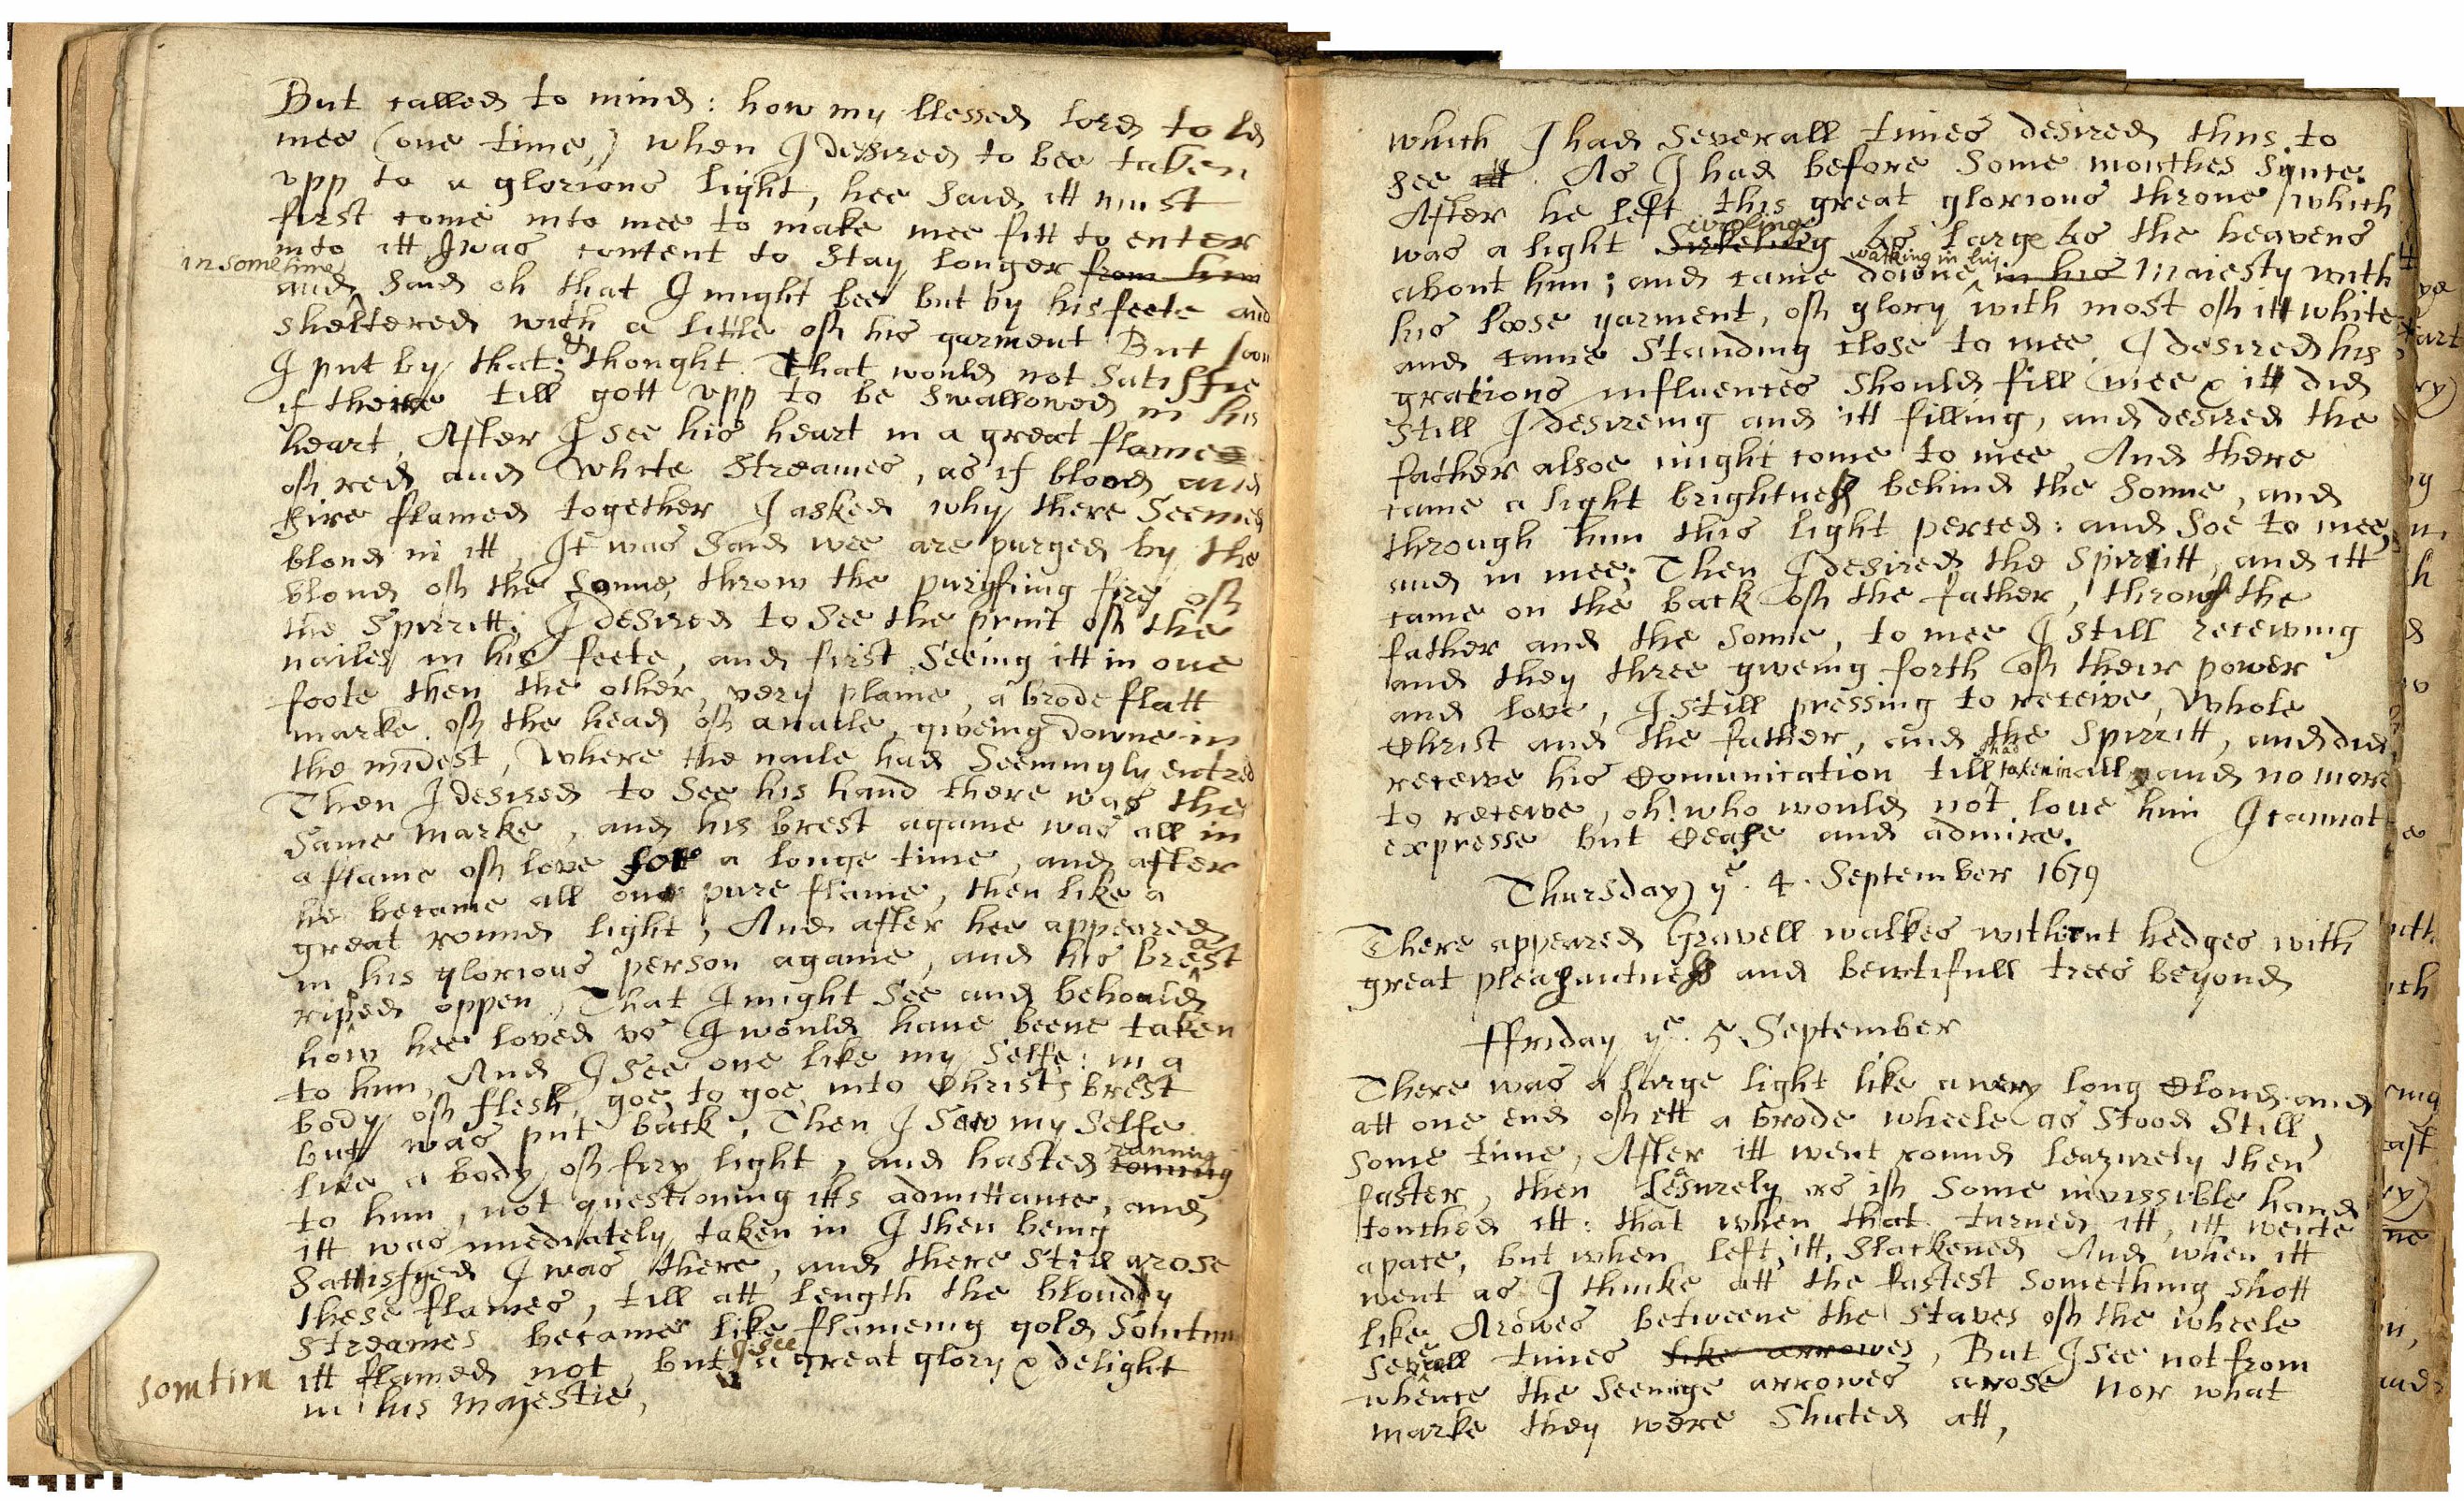 But called to mind: how my blessed lord told
mee (one time,) when I desired to bee taken
vpp to a glorious light, hee said itt must
first come into mee to make mee fitt to enter
into itt I was content to stay longer from him
in some time
and said oh that I might bee but by his feete and
sheltered with a little off his garment But soon
I put by that; & thought That would not Satisffie
if theire till gott vpp to be swallowed in his
heart, After I see his heart in a great flame
off red and white streames, as if blood and
fire flamed together I asked why there seemed
bloud in itt, It was said wee are purged by the
bloud off the sonne, throw the purifing fire off
the Spirritt, I desired to see the print off the
nailes in his feete, and first seeing itt in one
foote then the other, very plaine, a brode flatt
marke off the head off a naile, giveing downe in
the midest, where the naile had seemingly entred
Then I desired to see his hand there was the
same marke, and his brest againe was all in
a flame off love for a longe time, and after
he became all one pure flame, then like a
great round light, And after hee appeared
in his glorious person againe, and his breast
ripped oppen, That I might see and behould
how hee loved vs I would haue beene taken
to him, And I see one like my selfe: in a
body off flesh, goe, to goe into Christs brest
but was put back, Then I saw my selfe
like a body off firy light, and hasted coming
raning
to him, not questioning itts admittance, and
itt was imediately taken in I then being
Sattisfyed I was there, and there still arose
these flames, till att length the bloudy
streames became like flameing gold Somtim
itt flamed not, but I see a great glory & delight
somtim
in his majestie,
which I had severall times desired thus to
see itt. As I had before some monthes synce.
After he left this great glorious throne / which
was a light Sirkeling circling As large As the heavens
about him; and came downe in his walking in his Maiesty with
his loose garment, off glory with most off itt white
and came standing close to mee, I desired his
gracious influences should fill mee & itt did
still I desireing and itt filling, and desired the
father alsoe might come to mee And there
came a light brightness behind the sonne, and
through him this light perced: and soe to mee,
and in mee; Then I desired the Spirritt, and itt
came on the back off the father, throw the
father and the sonne, to mee I still receiving
and they three giveing forth off their power
and love, I still pressing to receive, Whole
Christ and the father, and the Spirritt, and did
receive his Comunication till I had taken in all, and no more
to receive, oh! who would not loue him I cannot
expresse but Cease and admire.
Thursday ye. 4. September 1679
There appeared Gravell walkes without hedges with
great pleasantness and bewtifull trees beyond
ffriday ye. 5 September
There was a large light like a very long Cloud and
att one end off itt a brode wheele as stood still,
some time, After itt went round leazurely then
faster, then leasurely as iff some invissible hand
touched itt: that when that turned itt, itt wente
apace, but when left, itt, slackened And when itt
went as I thinke att the fastest something shott
like Arowes betweene the staves off the wheele
severall times like arrowes, But I see not from
whence the seeminge arrowes arose nor what
marke they were shuted att,